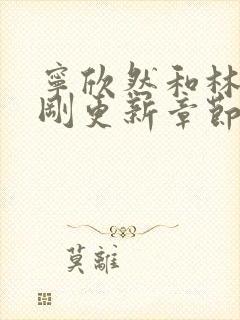 寧欣然和林
剛更新章節
莫離